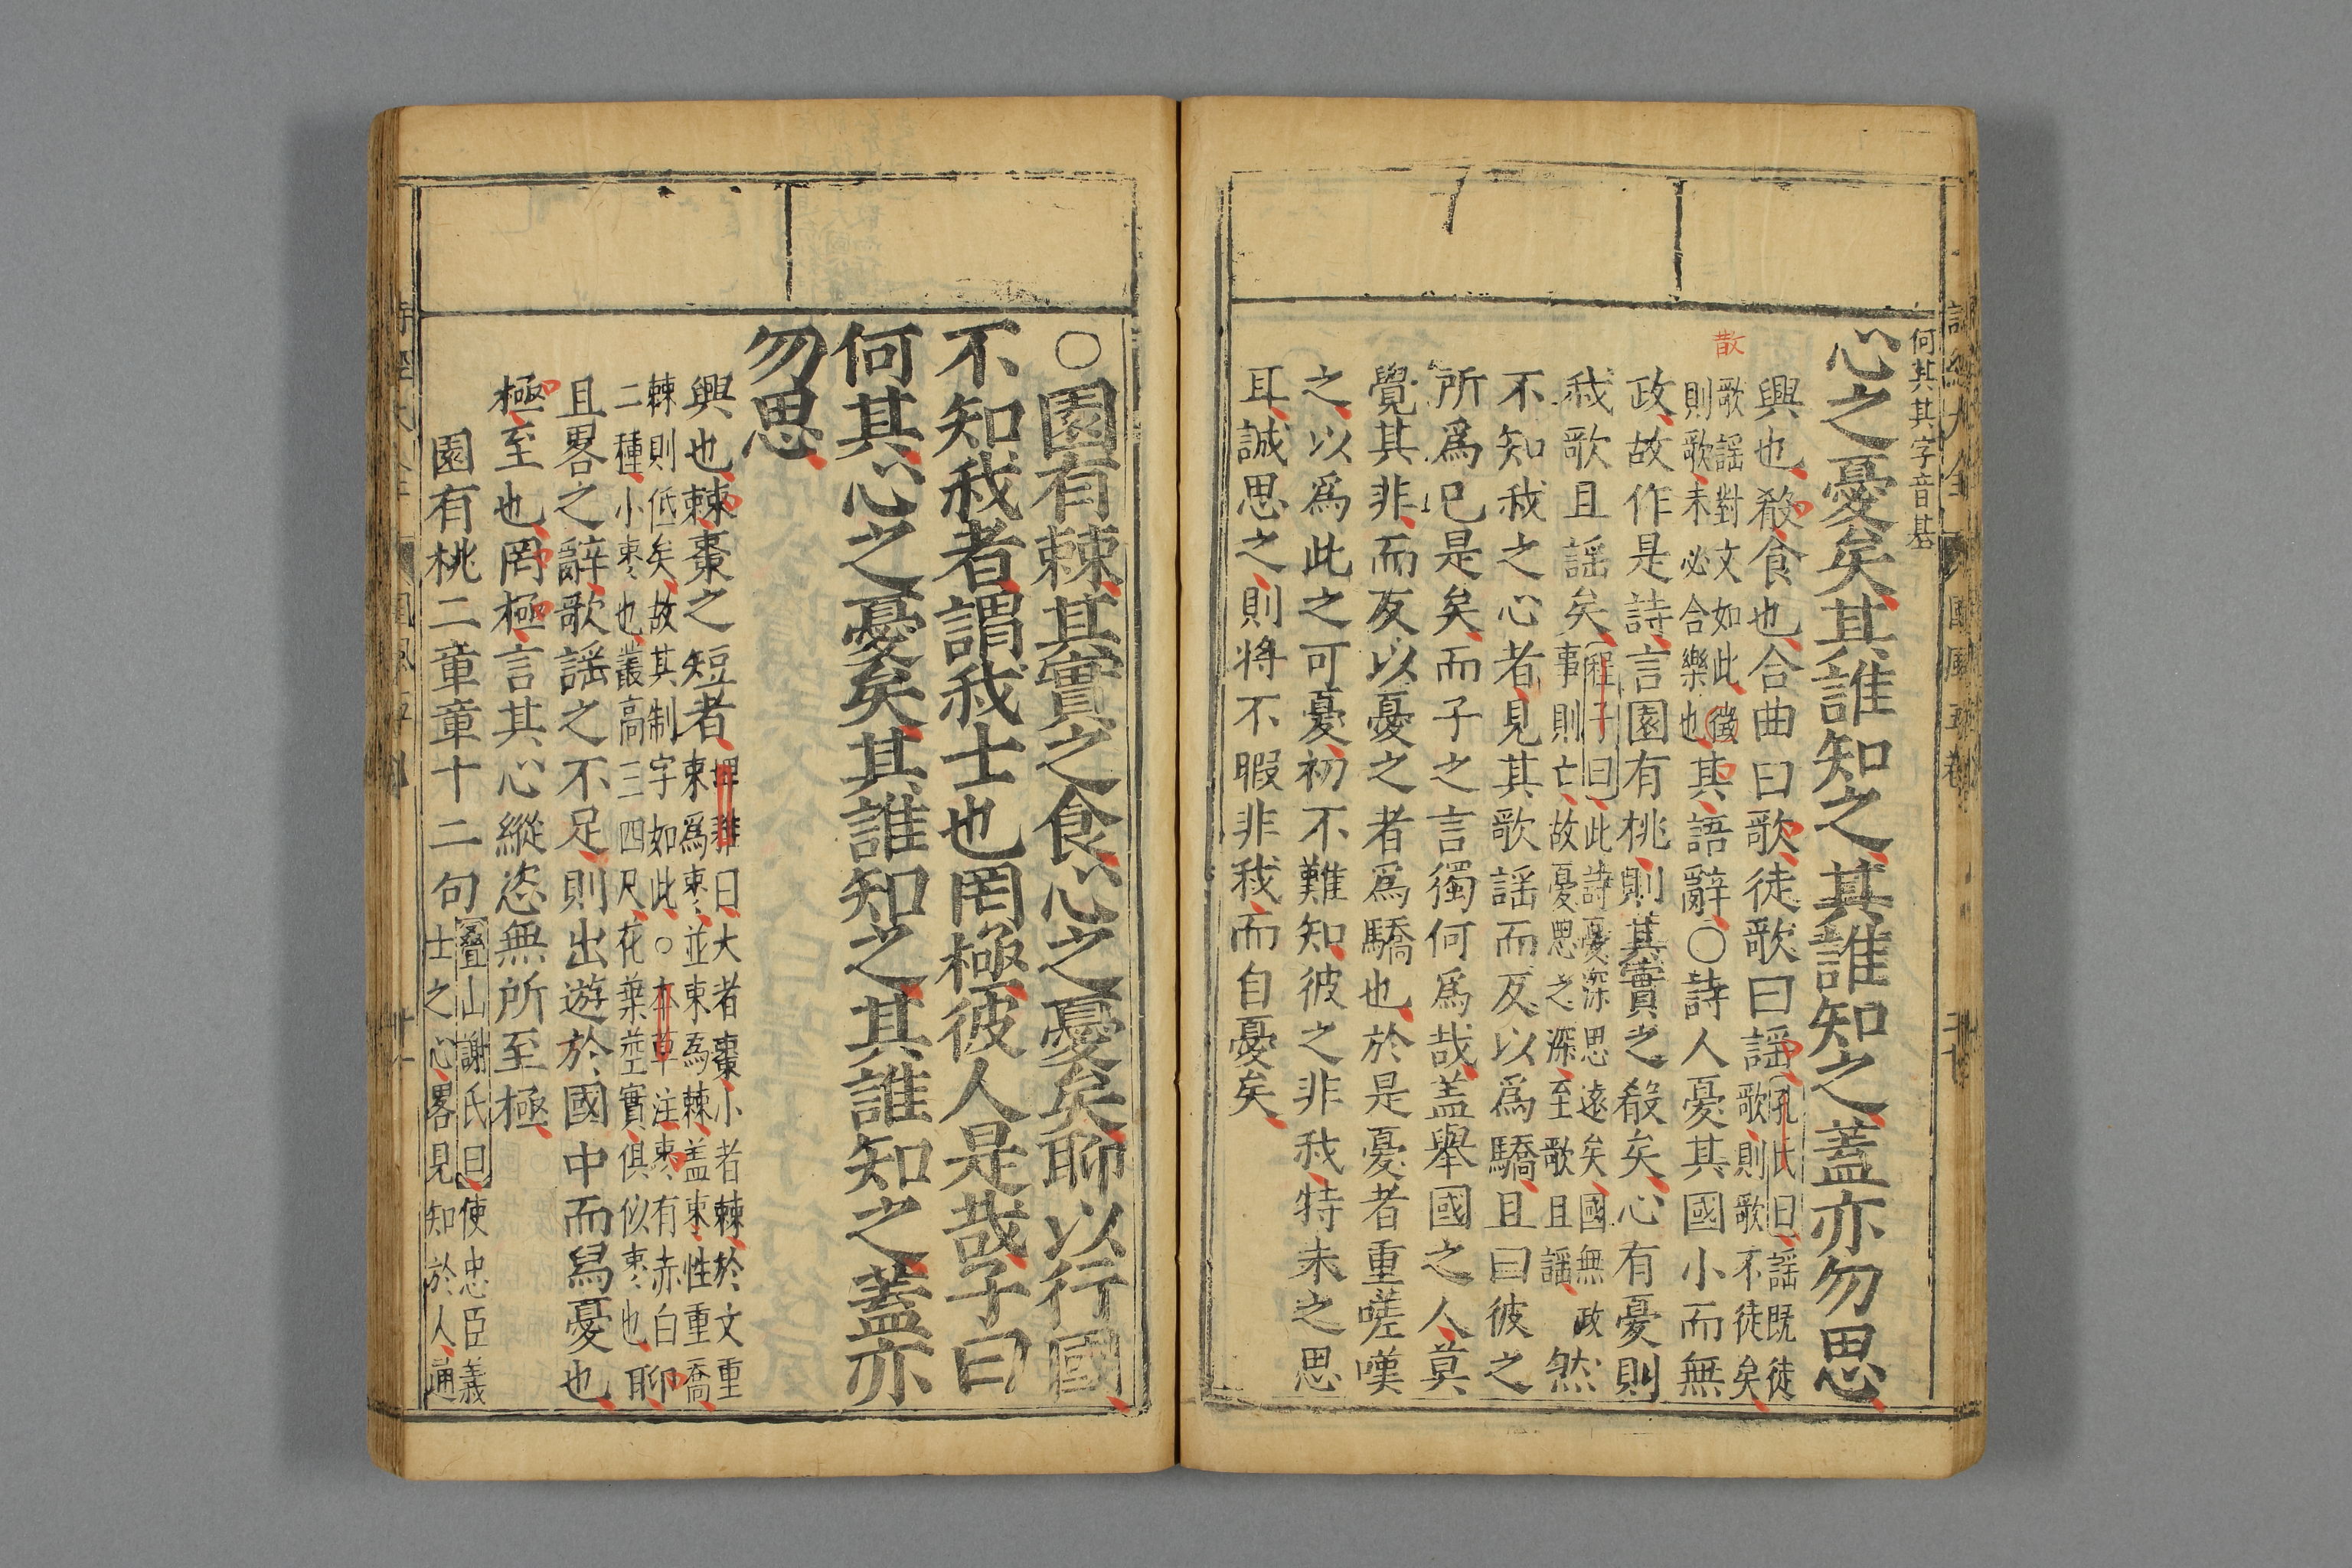 何其其字音基
心之憂矣其誰知之其誰知之蓋亦勿思
興也殽食也合曲曰歌徒歌曰謠孔氏曰謠既徒
歌則歌不徒矣
散
歌謠對文如此
則歌未必合樂也其語辭○詩人憂其國小而無
政故作是詩言園有桃則其實之殽矣心有憂則
我歌且謠矣程子曰此詩憂深思遠矣國無政
事則亡故憂思之深至歌且謠然
不知我之心者見其歌謠而反以爲驕且曰彼之
所爲已是矣而子之言獨何爲哉蓋舉國之人莫
覺其非而反以憂之者爲驕也於是憂者重嗟嘆
之以爲此之可憂初不難知彼之非我特未之思
耳誠思之則將不暇非我而自憂矣
○園有棘其實之食心之憂矣聊以行國
不知我者謂我士也罔極彼人是哉子曰
何其心之憂矣其誰知之其誰知之蓋亦
勿思
興也棘棗之短者埤雅曰大者棗小者棘於文重
朿爲棗並朿爲棘蓋朿性重喬
棘則低矣故其制字如此○本草注棗有赤白
二種小棗也叢高三四尺花葉莖實俱似棗也聊
且畧之辭歌謠之不足則出遊於國中而舄憂也
極至也罔極言其心縱恣無所至極
園有桃二章章十二句疊山謝氏曰使忠臣義
士之心畧見知於人